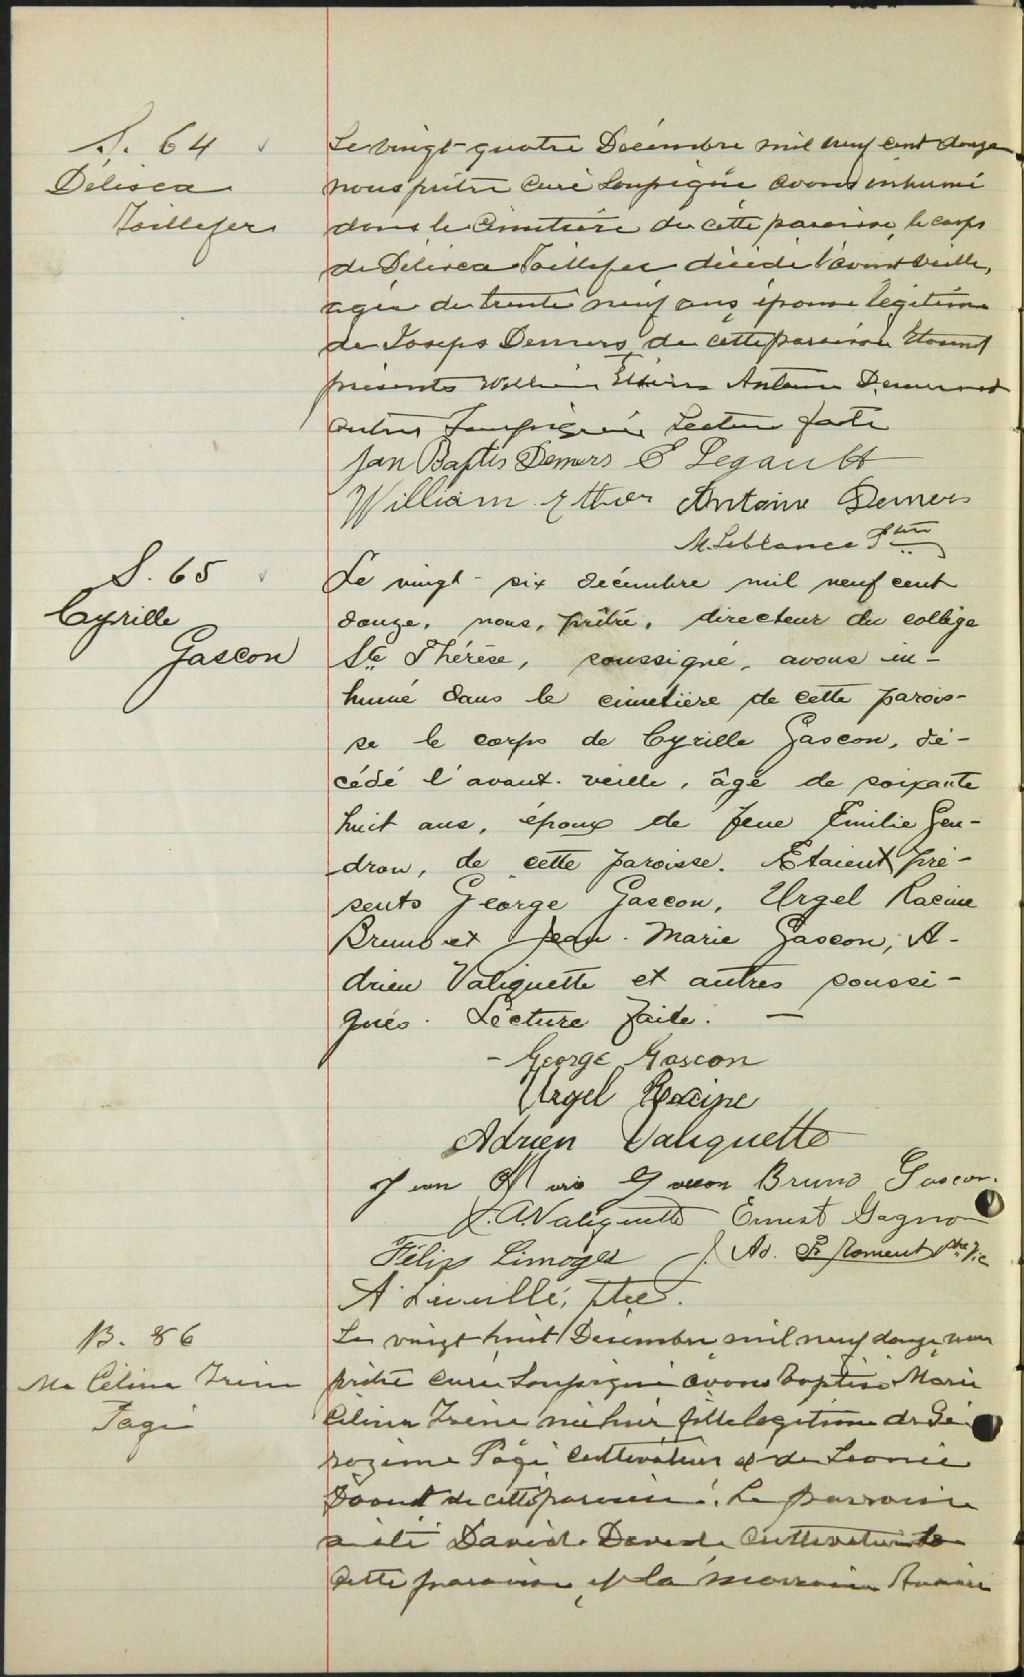 S. 64
Délisca
Taillefer
Le vingt-quatre Décembre mil neuf cent douze
nous prêtre curé soussigné avons inhumé
dans le Cimetière de cette paroisse le corps
de Délisca Taillefer décédé l'avant veille,
agée de trente neuf ans épouse légitime
de Joseps Demers de cette paroisse Etaient
présents William Ethier Antoine Demers et
autres Soussignés Lecture faite
Jan Baptis Demers E Legault
William Ethier Antoine Demers
M. Leblanc Ptre
S. 65
Cyrille
Gascon
Le vingt-six décembre mil neuf cent
douze, nous, prêtre, directeur du collège
Ste Thérèse, soussigné, avons in-
humé dans le cimetière de cette parois-
se le corps de Cyrille Gascon, dé-
cédé l'avant-veille, âgé de soixante
huit ans, époux de feue Emilie Gen-
dron, de cette paroisse. Etaient pré-
sents George Gascon, Urgel Racine
Bruno et Jean-Marie Gascon, A-
drien Valiquette et autres soussi-
gnés. Lecture faite. —
- George Gascon
Urgel Racine
Adrien Valiquette
Jean Marie Gascon Bruno Gascon.
A. Valiquette Ernest Gagnon
Félix Limoges J. Ad. ptre Vic
A ptre.
B. 86
Me Célina Irène
Pagé
Le vingt huit Décembre mil neuf douze nous
prêtre curé Soussigné avons baptisé Marie
Célina Irène née hier fille légitime de Gé
rozime Pagé Cultivateur et de Léonie
David de cette paroisse. Le parrain
a été David David Cultivateur de
Cette paroisse et la marraine